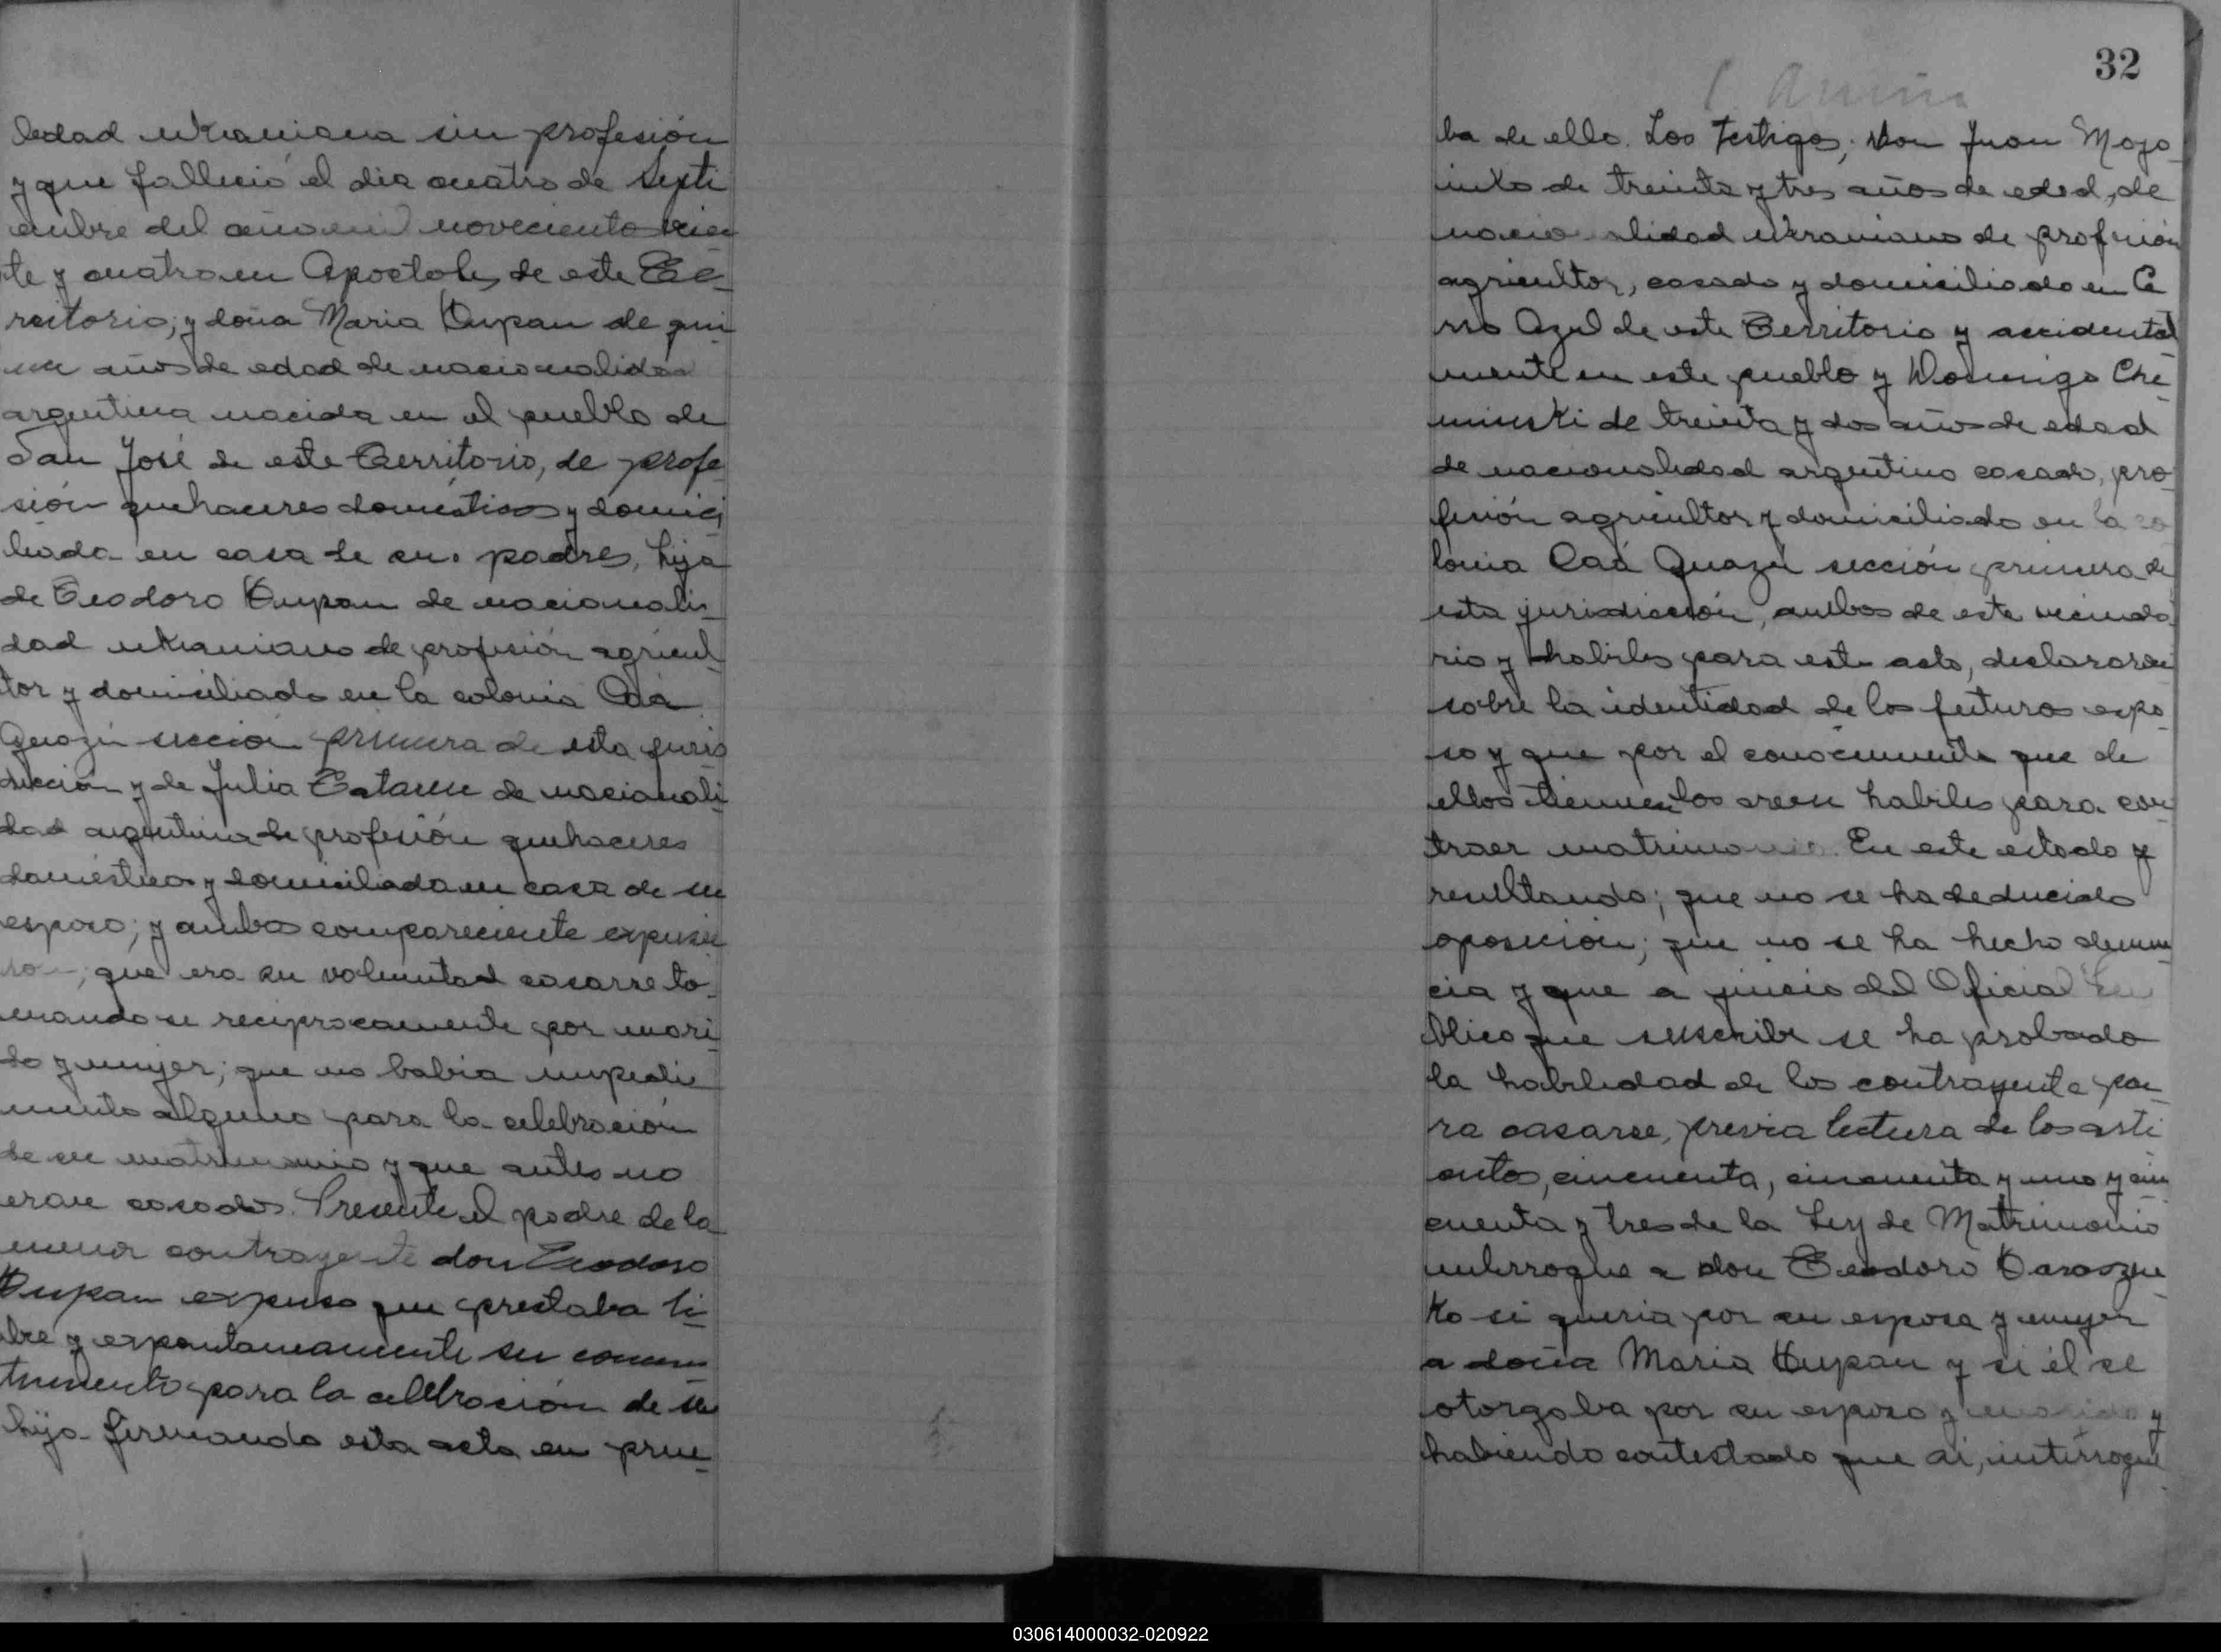 lidad ukraniana sin profesión
y que falleció el dia cuatro de Septi
embre del año mil novecientos vein
te y cuatro en Apostoles de este Te-
rritorio; y doña Maria Kupan de quin
ce años de edad de nacionalidad
argentina nacida en el pueblo de
San José de este Territorio, de profe
sión quehaceres domésticos y domici
liada en casa de sus padres, hija
de Teodoro Kupan de nacionali-
dad ukraniano de profesión agricul-
tor y domiciliado en la colonia Caá
Guazú sección primera de esta juris
dicción y de Julia de nacionali
dad argentina de profesión quehaceres
domésticos y domiciliada en casa de su
esposo; y ambos compareciente expusie
ron; que era su voluntad casarse to-
mandose reciprocamente por mari
do y mujer; que no habia impedi
mento alguno para la celebración
de su matrimonio y que antes no
eran casados. Presente el padre de la
menor contrayente don Teodoro
Kupan expuso que prestaba li-
bre y expontaneamente su consen-
timiento para la celebración de su
hija firmando esta acta en prue-
32
ba de ello. Los Testigos; don Juan Mozo-
de treinta y tres años de edad, de
nacionalidad ukraniano de profesión
agricultor, casado y domiciliado en Ce
rro Azul de este Territorio y accidental
mente en este pueblo y Domingo Che-
minski de treinta y dos años de edad
de nacionalidad argentino casado, pro-
fesión agricultor y domiciliado en la co
lonia Caá Guazú sección primera de
esta jurisdicción, ambos de este vecinda
rio y habiles para este acto, declararon
sobre la identidad de los futuros espo
so y que por el conocimiento que de
ellos tienen los creen habiles para con
traer matrimonio. En este estado y
resultando; que no se ha deducido
oposición; que no se ha hecho denun
cia y que a juicio del Oficial Pu
blico que suscribe se ha probado
la habilidad de los contrayente pa-
ra casarse, previa lectura de los arti
culos, cincuenta, cincuenta y uno y cin
cuenta y tres de la Ley de Matrimonio
interrogue a don Teodoro
ko si queria por su esposa y mujer
a doña Maria Kupan y si él se
otorgaba por su esposo y marido y
habiendo contestado que si, interrogué
030614000032-020922